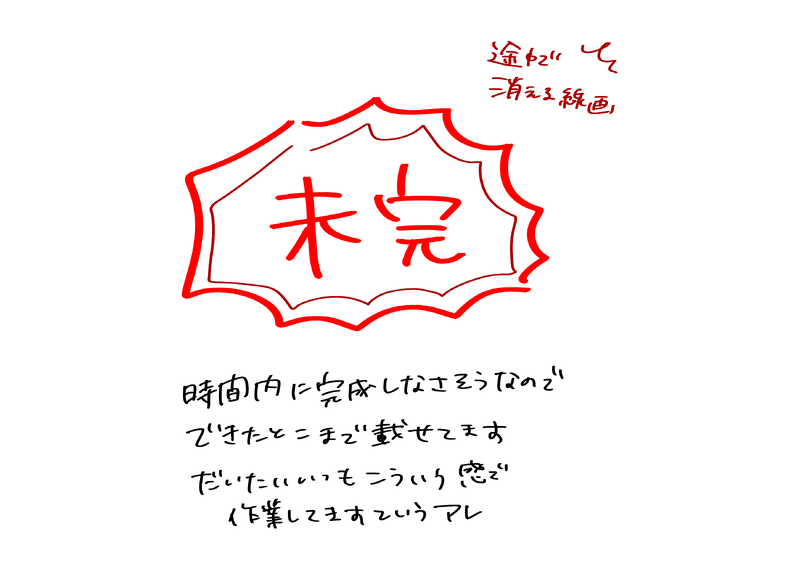 途中で
消える線画
未完
時間内に完成しなさそうなので
できたとこまで載せてます
だいたいいつもこういう感じで
作業してますていうアレ